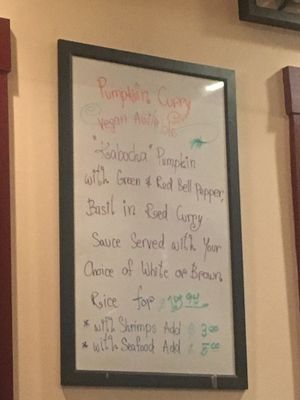 Pumpkin Curry
Vegan Available
"Kabocha" Pumpkin
with Green & Red Bell Pepper,
Basil in Red Curry
Sauce Served with Your
Choice of White or Brown
Rice for
* with Shrimps Add $ 3.00
* with Seafood Add $ 5.00